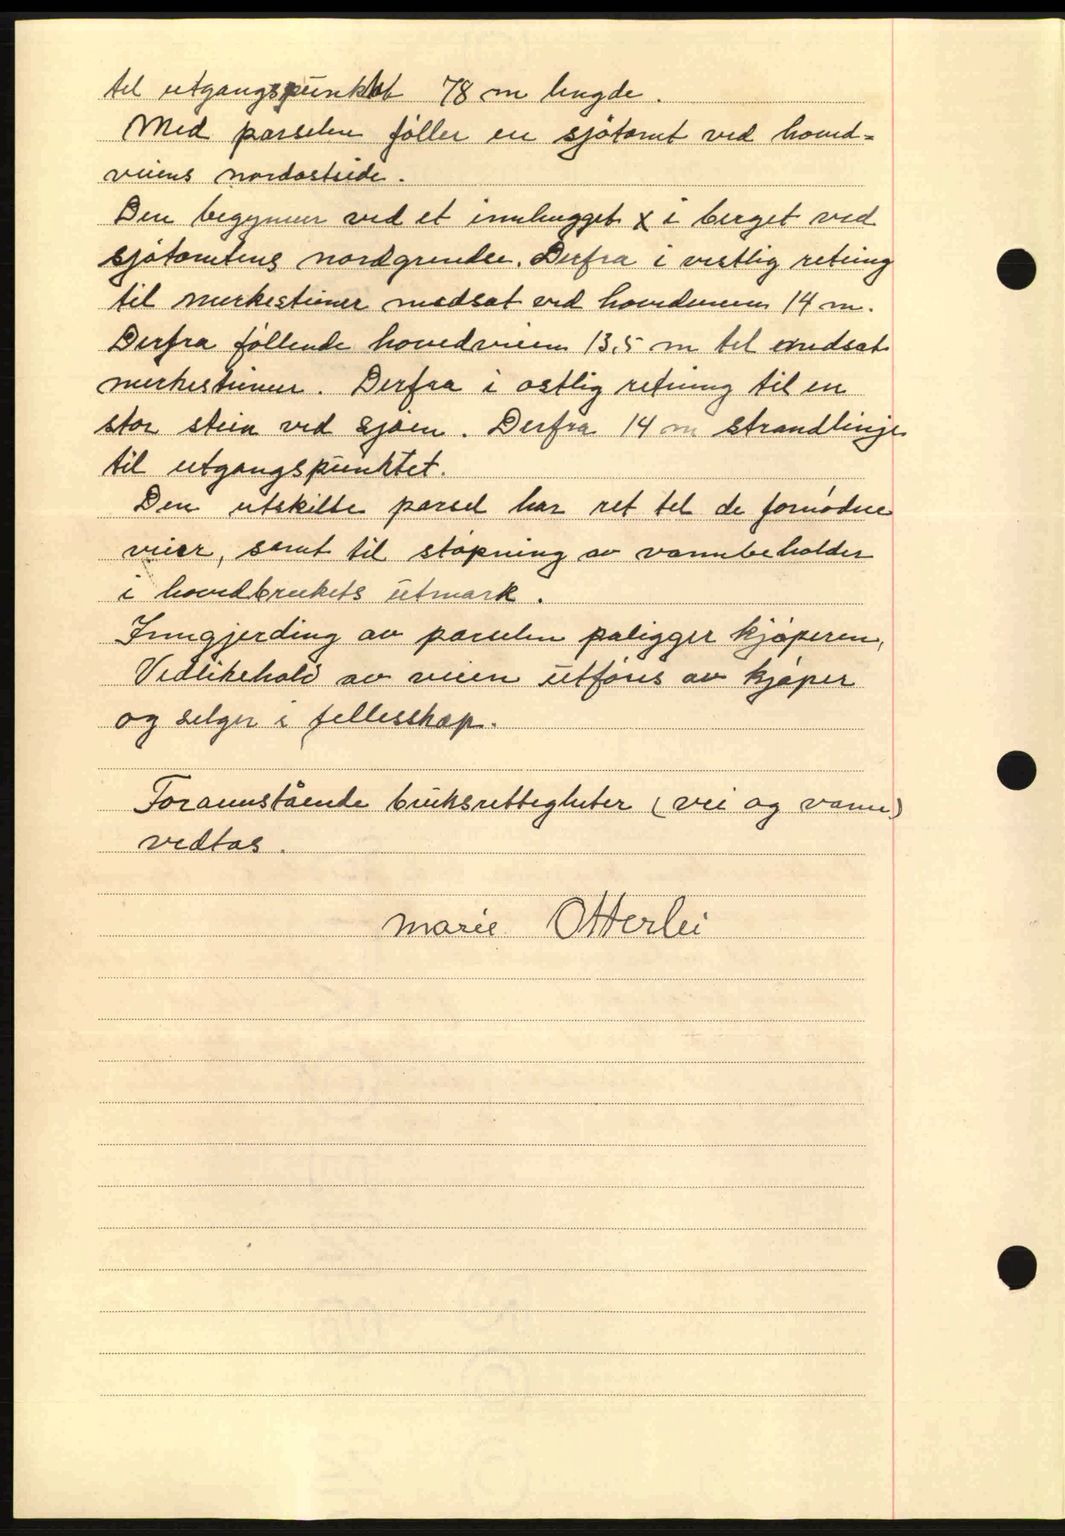 til utgangspunktet 78 m lengde.
Med parselen føller en sjøtomt ved hoved=
veiens nordostside.
Den begynner ved et innhugget x i berget ved
sjøtomtens nordgrense. Derfra i vestlig retning
til merkesteiner nedsat ved hovedveien 14 m.
Derfra føllende hovedveien 13,5 m til nedsat
merkesteiner. Derfra i ostlig retning til en
stor stein ved sjøen. Derfra 14 m strandlinje
til utgangspunktet.
Den utskilte parsel har ret til de fornødne
veier, samt til støpning av vannbeholder
i hovedbrukets utmark.
Inngjerding av parselen paligger kjøperen,
Vedlikehold av veien utføres av kjøper
og selger i fellesskap.
Forannstående bruksrettigheter (vei og vann)
vedtas.
Marie Otterlei